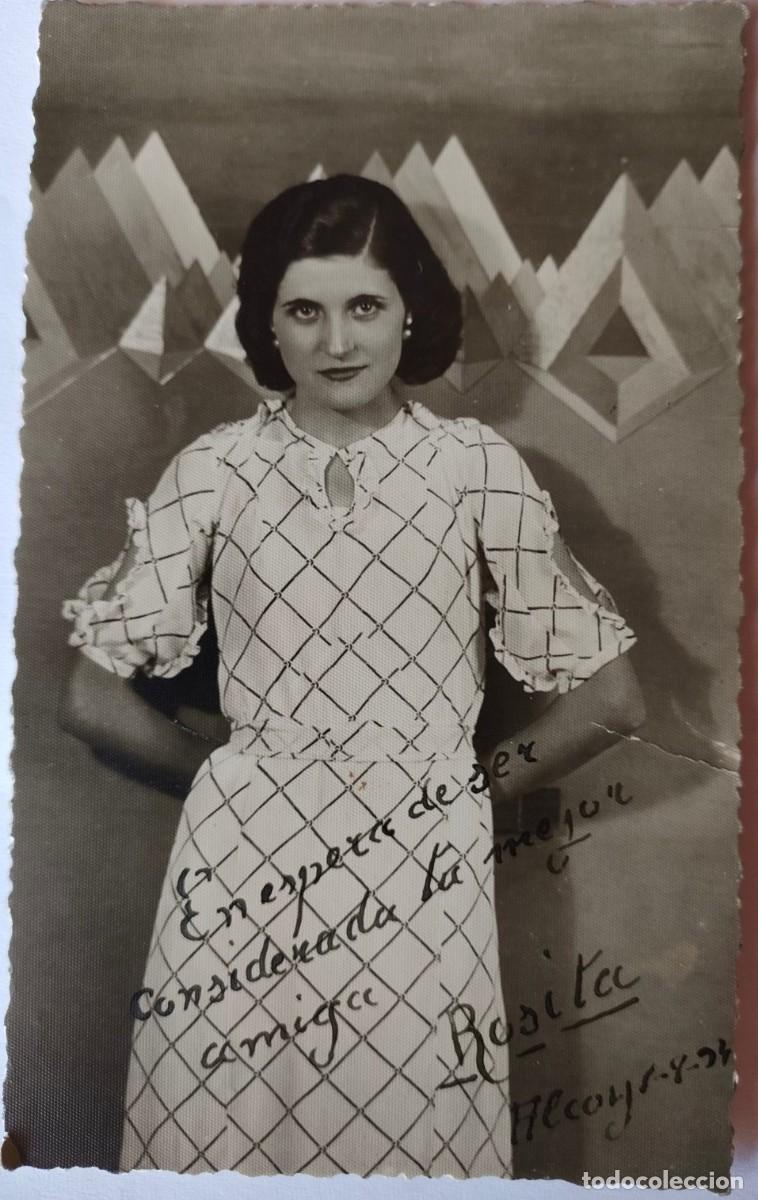 En espera de ser
considerada tu mejor
amiga
Rosita
Alcoy
todocoleccion